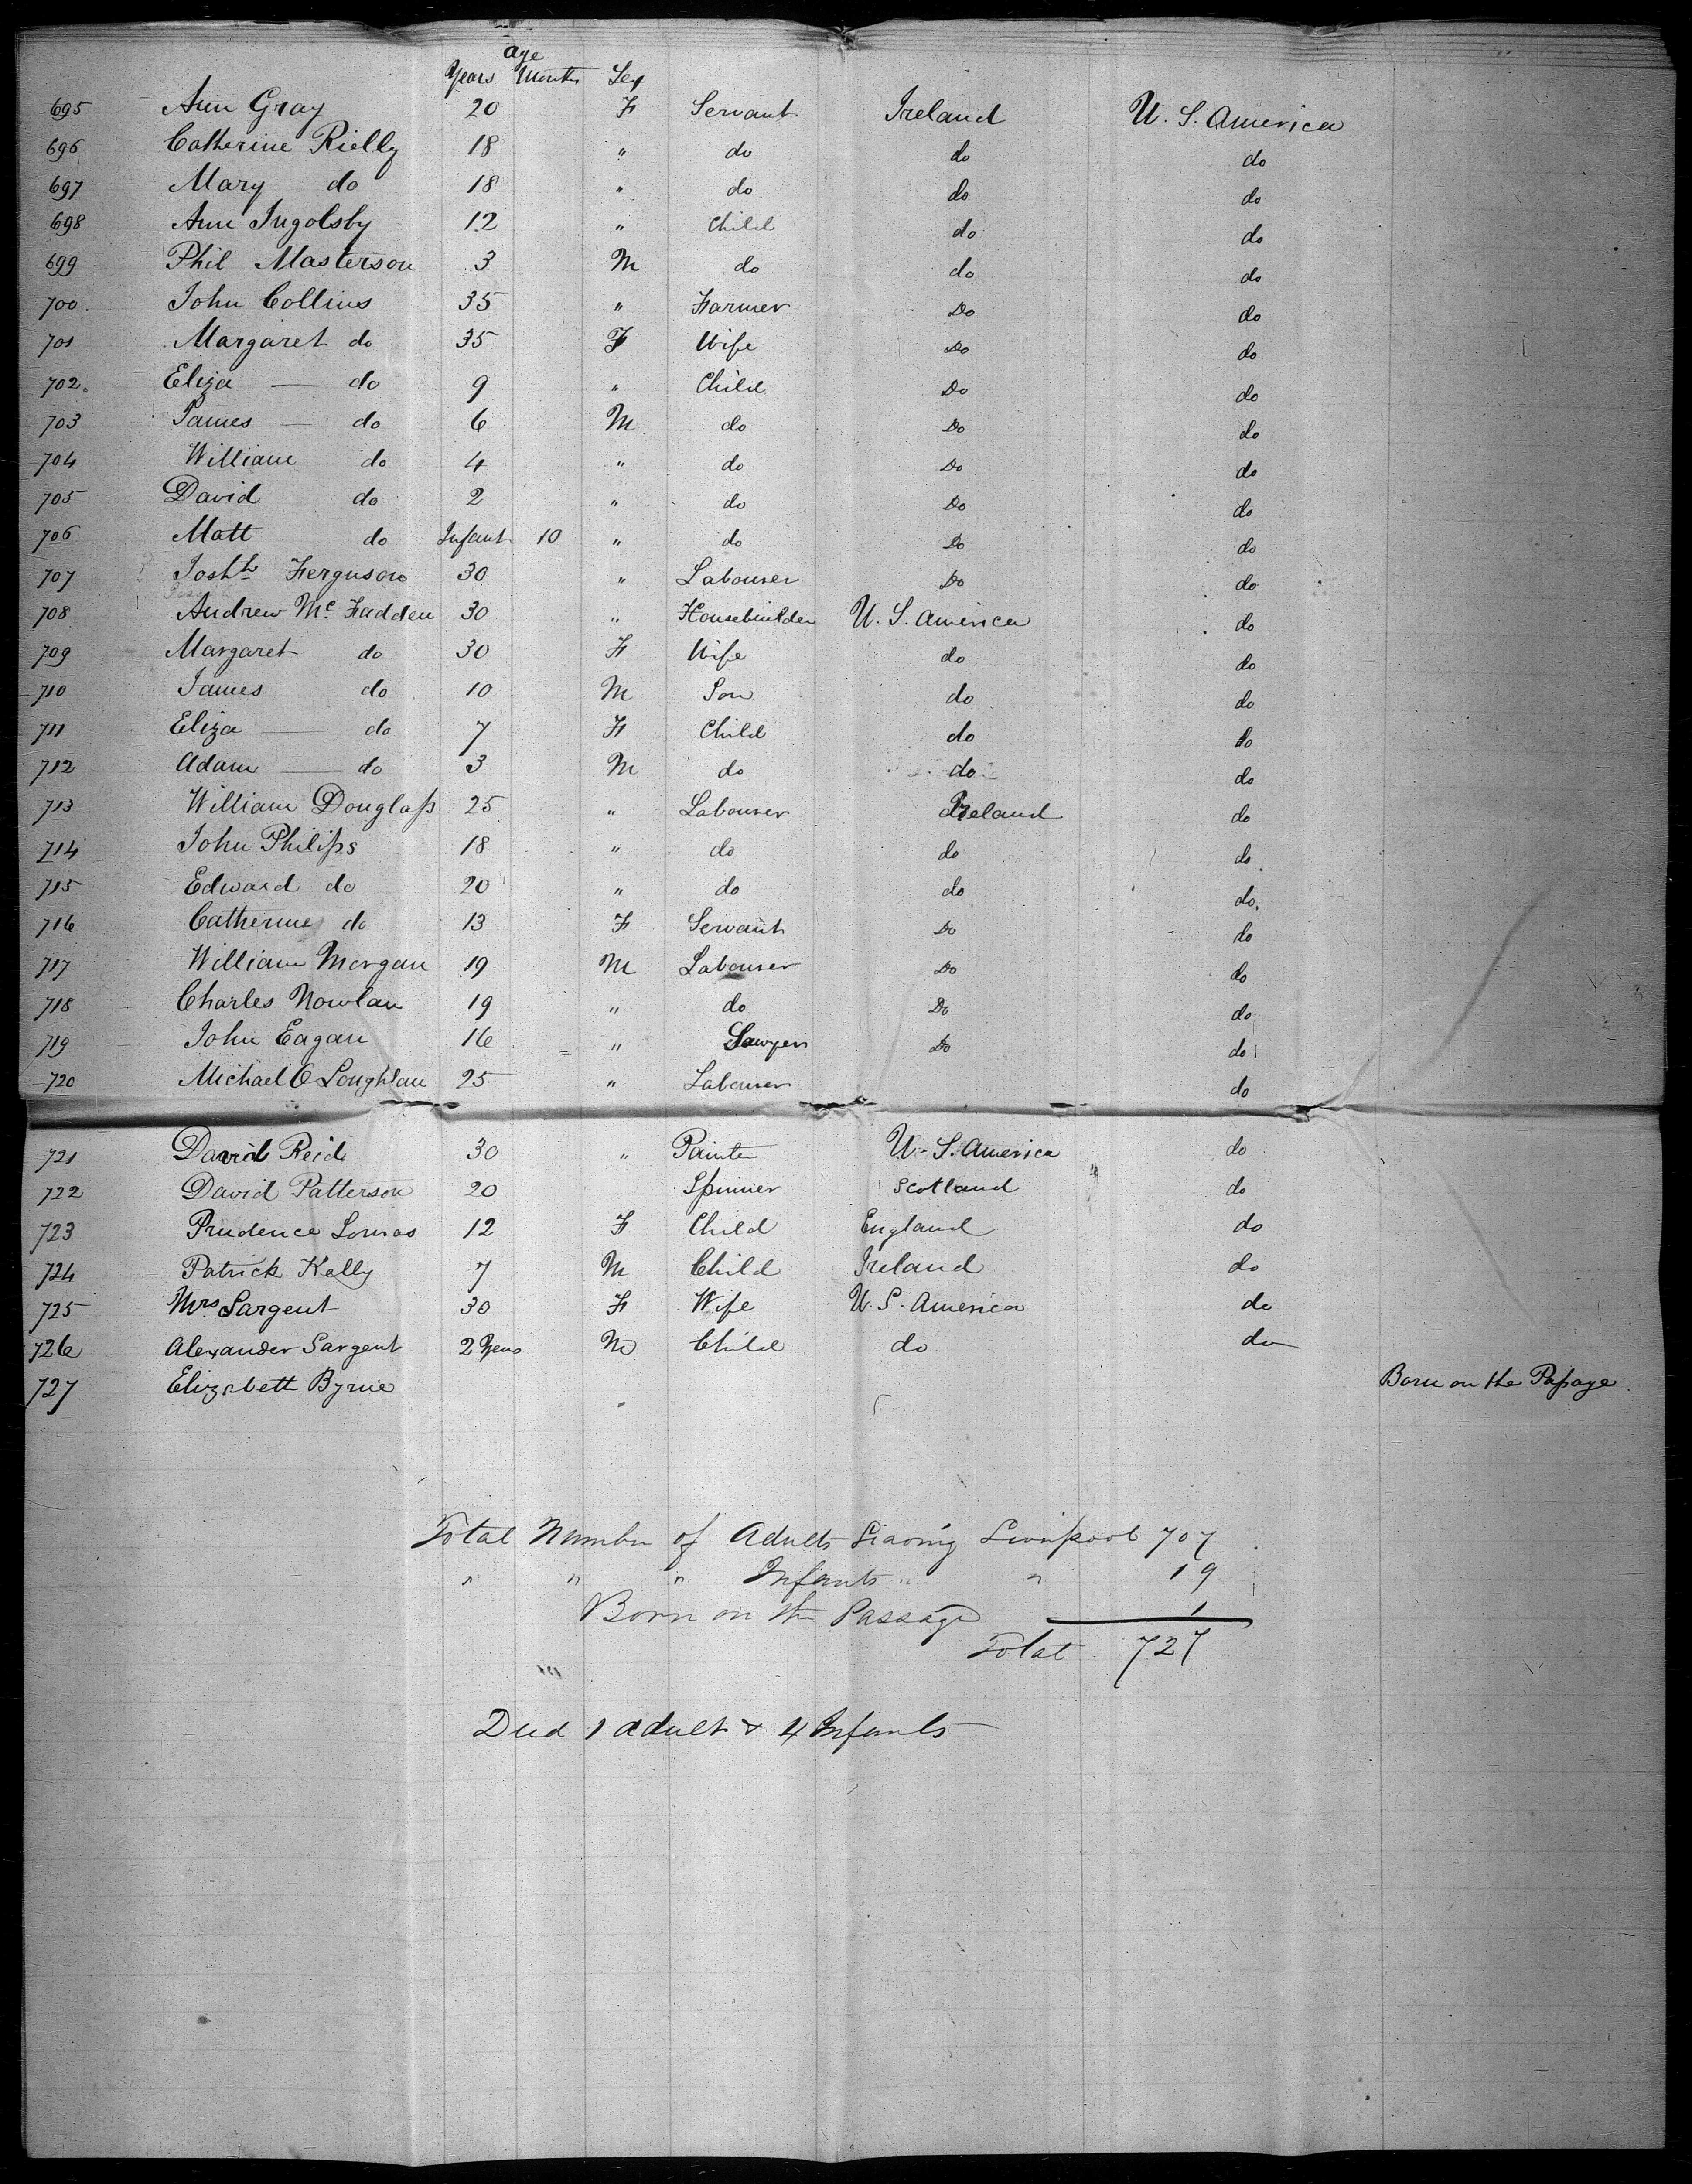 Age
Years Months Sex
695 Ann Gray 20 F Servant Ireland U. S. America
696 Catherine Rielly 18 " do do do
697 Mary do 18 " do do do
698 Ann Ingolsby 12 " Child do do
699 Phil Masterson 3 M do do do
700 John Collins 35 " Farmer Do do
701 Margaret do 35 F Wife Do do
702 Eliza — do 9 " Child Do do
703 James — do 6 M do Do do
704 William do 4 " do Do do
705 David do 2 " do Do do
706 Matt do Infant 10 " do Do do
707 Ferguson 30 " Labourer Do do
708 Andrew Mc Fadden 30 " Housebuilder U. S. America do
709 Margaret do 30 F Wife do do
710 James do 10 M Son do do
711 Eliza — do 7 F Child do do
712 Adam — do 3 M do do do
713 William Douglass 25 " Labourer Ireland do
714 John Philips 18 " do do do
715 Edward do 20 " do do do.
716 Catherine do 13 F Servant Do do
717 William Morgan 19 M Labourer Do do
718 Charles Nowlan 19 " do Do do
719 John Eagan 16 " Sawyer Do do
720 Michael O Loughlan 25 " Labourer do
721 David Reid 30 " Painter U. S. America do
722 David Patterson 20 Spinner Scotland do
723 Prudence Lomas 12 F Child England do
724 Patrick Kelly 7 M Child Ireland do
725 Mrs Sargent 30 F Wife U. S. America do
726 Alexander Sargent 2 Years M Child do do
727 Elizabeth Byrne Born on the Passage
Total Number of Adults Leaving Liverpool 707
" " " Infants " " 19
Born on the Passage 1
Total 727
Died 1 adult & 4 Infants